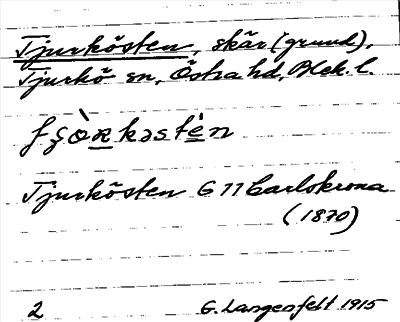 Tjurkösten, skär (grund),
Tjurkö sn, Östra hd, Blek. l.
Tjurkösten G 77 Carlskrona
(1870)
2 G. Langenfelt 1915